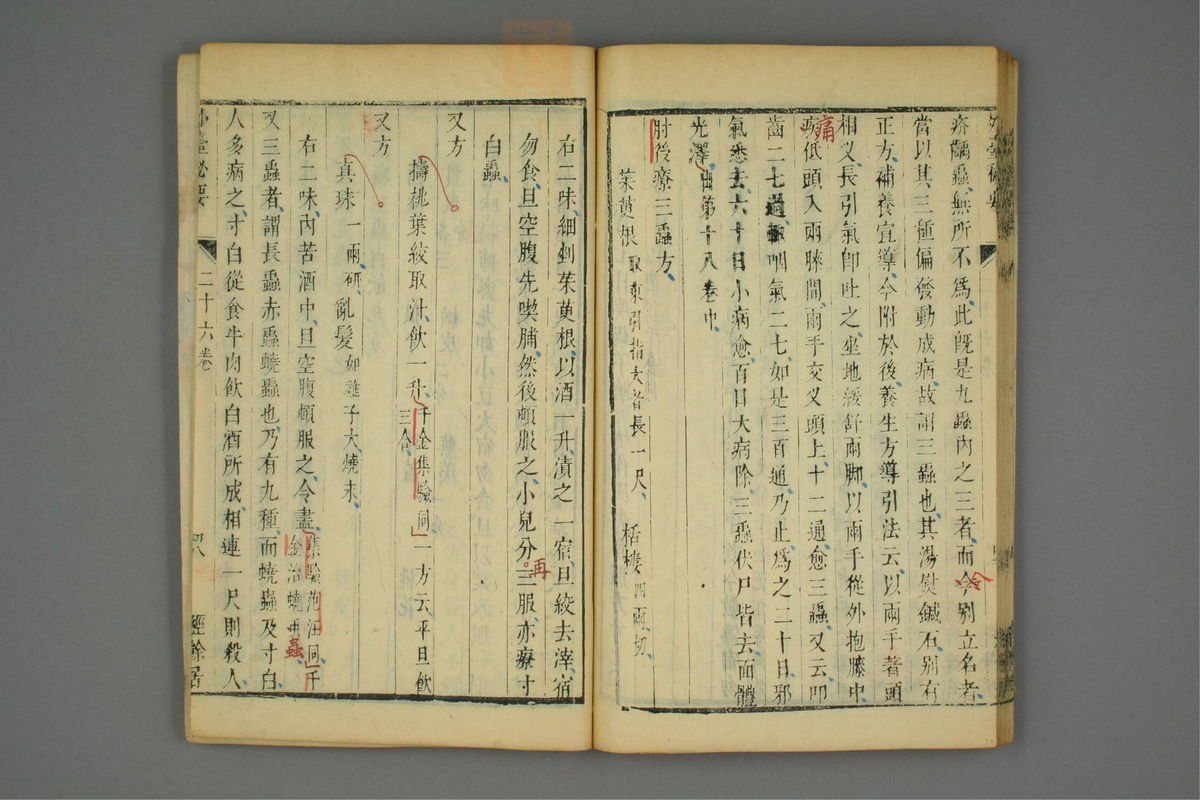 疥癬蟲無所不為此既是九蟲內之三者而今别立名者
當以其三種偏發動成病故謂三蟲也其湯熨鍼石别有
正方補養宜導今附於後養生方導引法云以兩手著頭
相叉長引氣卽吐之坐地緩舒兩脚以兩手從外抱膝中
疾低頭入兩膝間兩手交叉頭上十二通愈三蟲又云叩
痛
齒二七過輙咽氣二七如是三百通乃止為之二十日邪
氣悉去六十日小病愈百日大病除三蟲伏尸皆去面體
光澤出第十八卷中
肘後療三蟲方
茱萸根取東引指大者長一尺 栝樓四兩切
右二味細剉茱萸根以酒一升漬之一宿旦絞去滓宿
勿食旦空腹先喫脯然後頓服之小兒分三服亦療寸
再
白蟲
又方
擣桃葉絞取汁飲一升千金集驗同一方云平旦飲
三合
又方
真珠一兩研 亂髮如雞子大燒末
右二味內苦酒中旦空腹頓服之令盡集驗范汪同千
金治蟯
蟲
又三蟲者謂長蟲赤蟲蟯蟲也乃有九種而蟯蟲及寸白
人多病之寸白從食牛肉飲白酒所成相連一尺則殺人
外臺秘要
二十六卷
經餘居